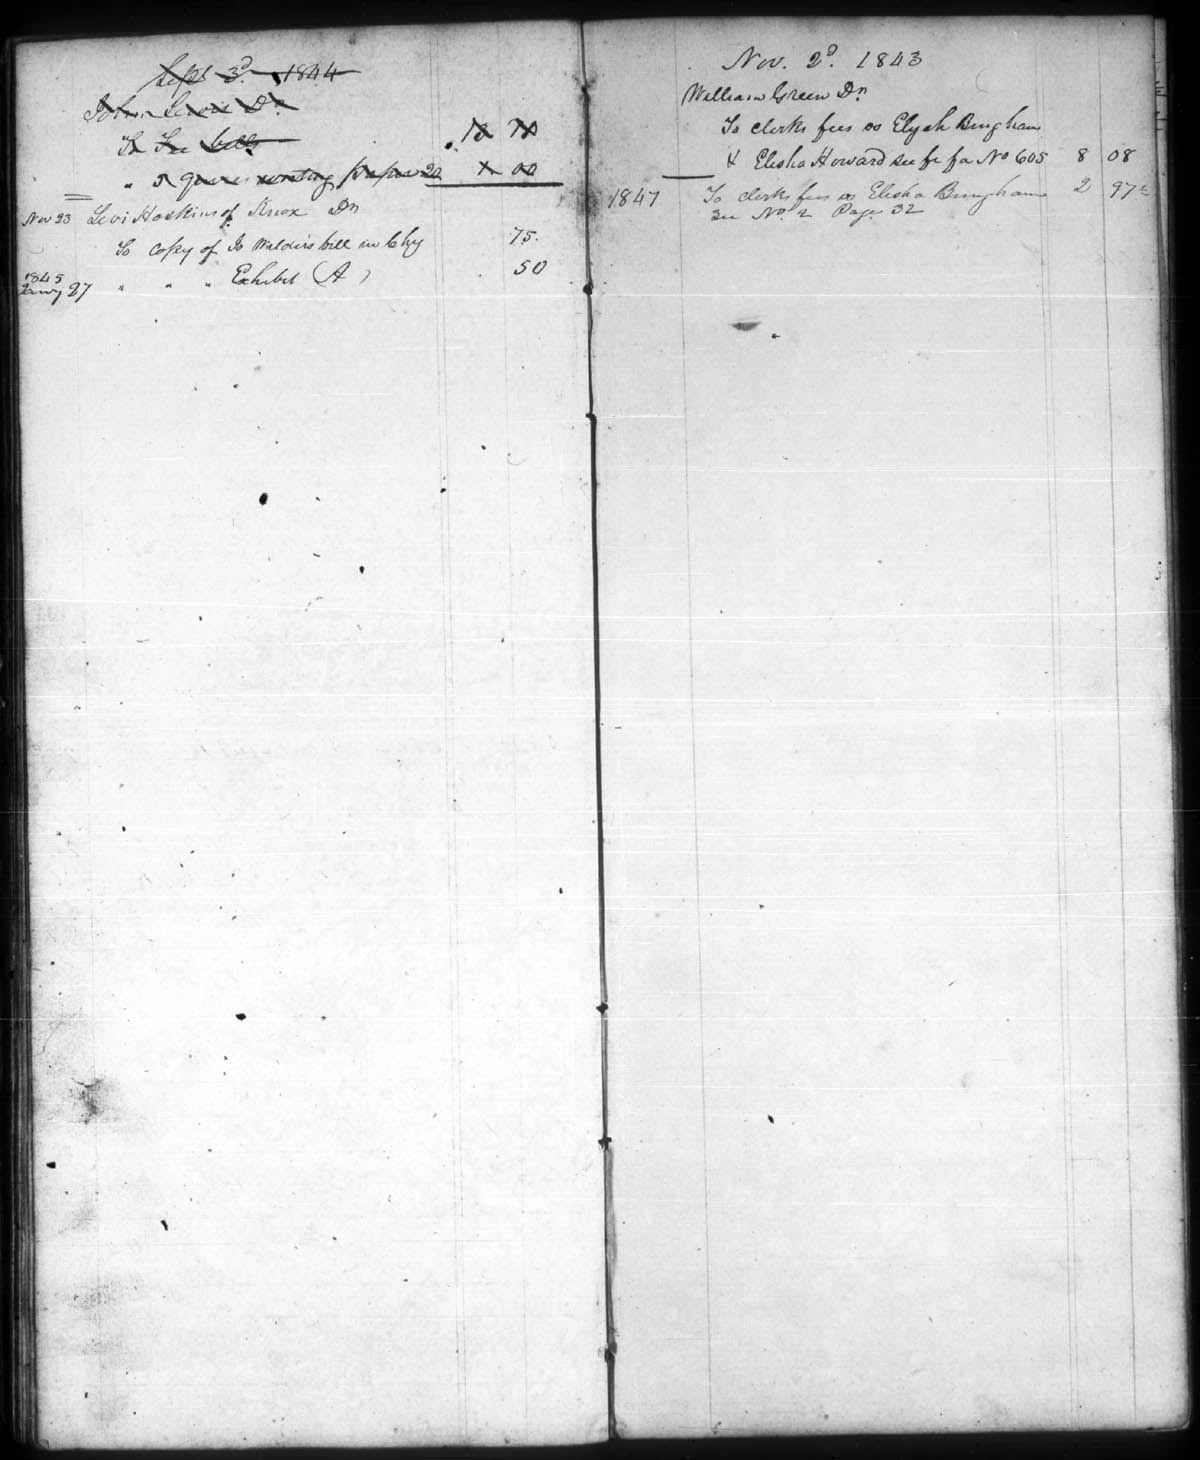 Sept 3d. 1844
John Lewis Dr.
To Fee bill 18 70
" 5 quires writing paper 20 1 00
Nov 23 Levi Hoskins of Knox Dr
To copy of Jo Walden's bill in Chy 75.
1845
Jany 27 " " " Exhibit (A) 50
Nov. 2d. 1843
William Green Dr
To clerks fees vs Elijah Bingham
& Elisha Howard see fi fa No 605 8 08
1847 To clerks fees vs Elisha Bingham 2 97
See No. 2 Page 32